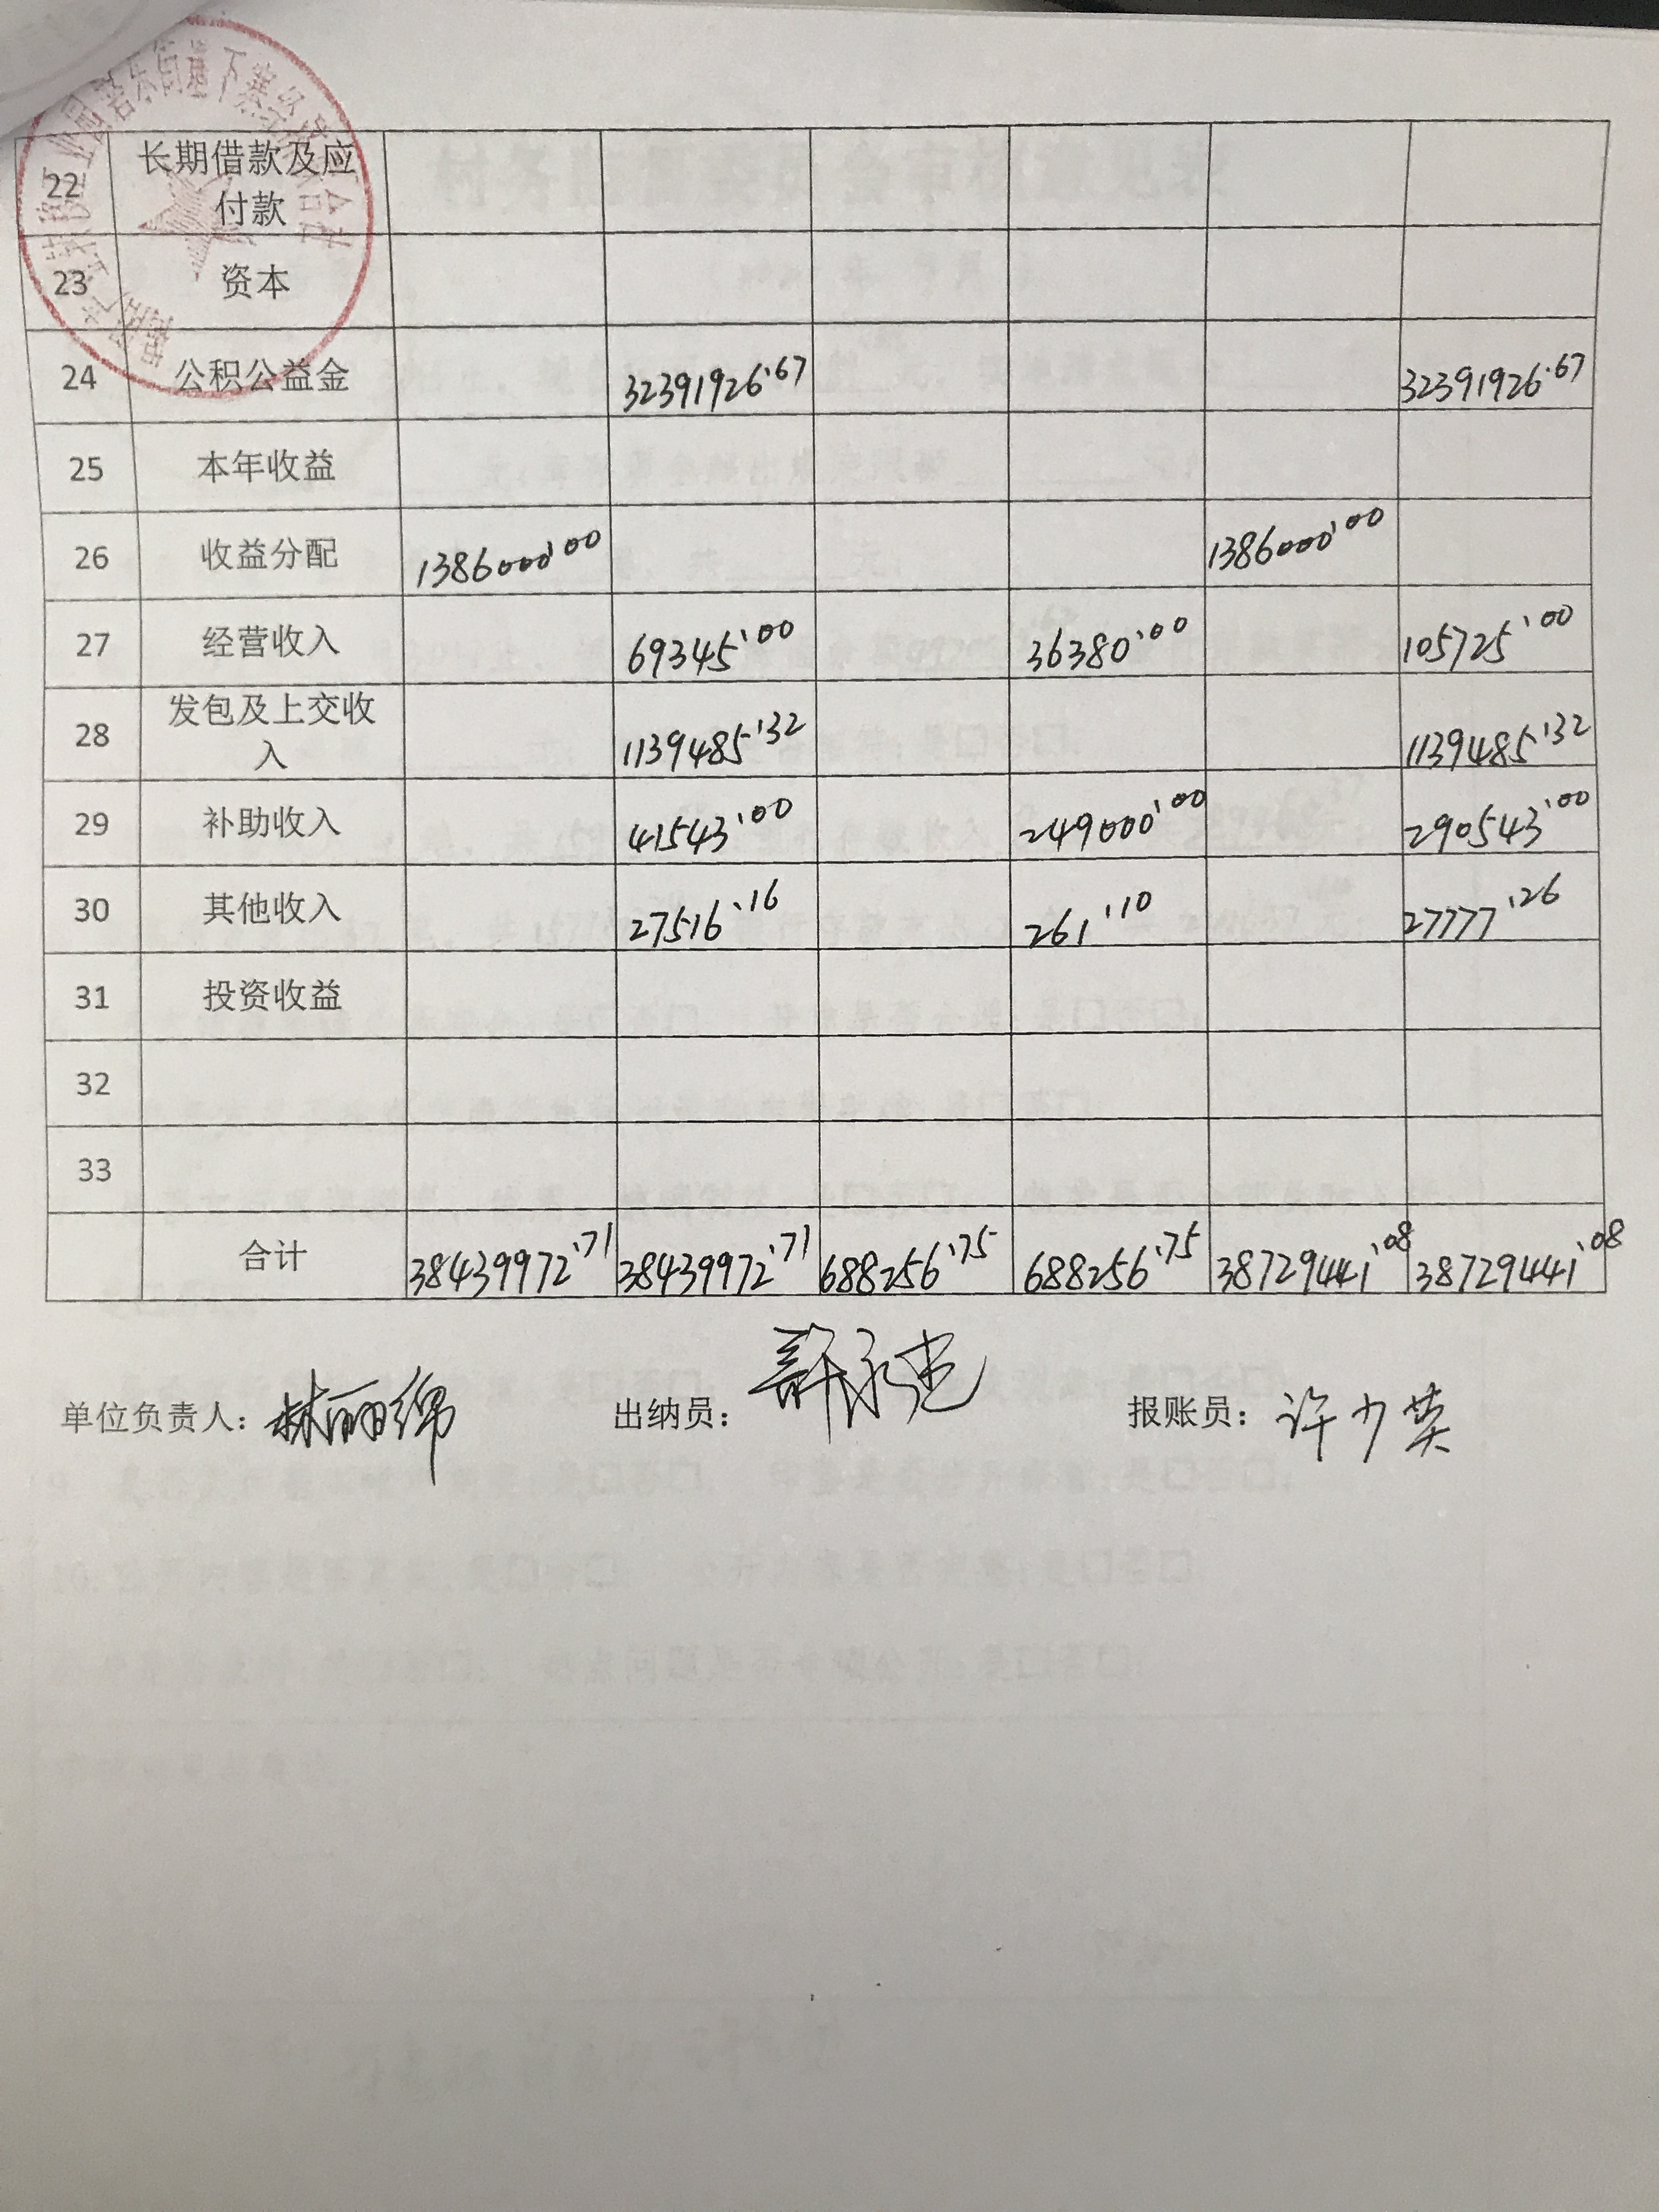 22 长期借款及应
付款
23 资本
24 公积公益金 32391926.67 32391926.67
25 本年收益
26 收益分配 1386000.00 1386000.00
27 经营收入 69345.00 36380.00 105725.00
28 发包及上交收
入 1139485.32 1139485.32
29 补助收入 41543.00 249000.00 290543.00
30 其他收入 27516.16 261.10 27777.26
31 投资收益
32
33
合计 38439972.71 38439972.71 688256.75 688256.75 38729441.08 38729441.08
单位负责人: 林丽绵 出纳员: 许永忠 报账员: 许少英